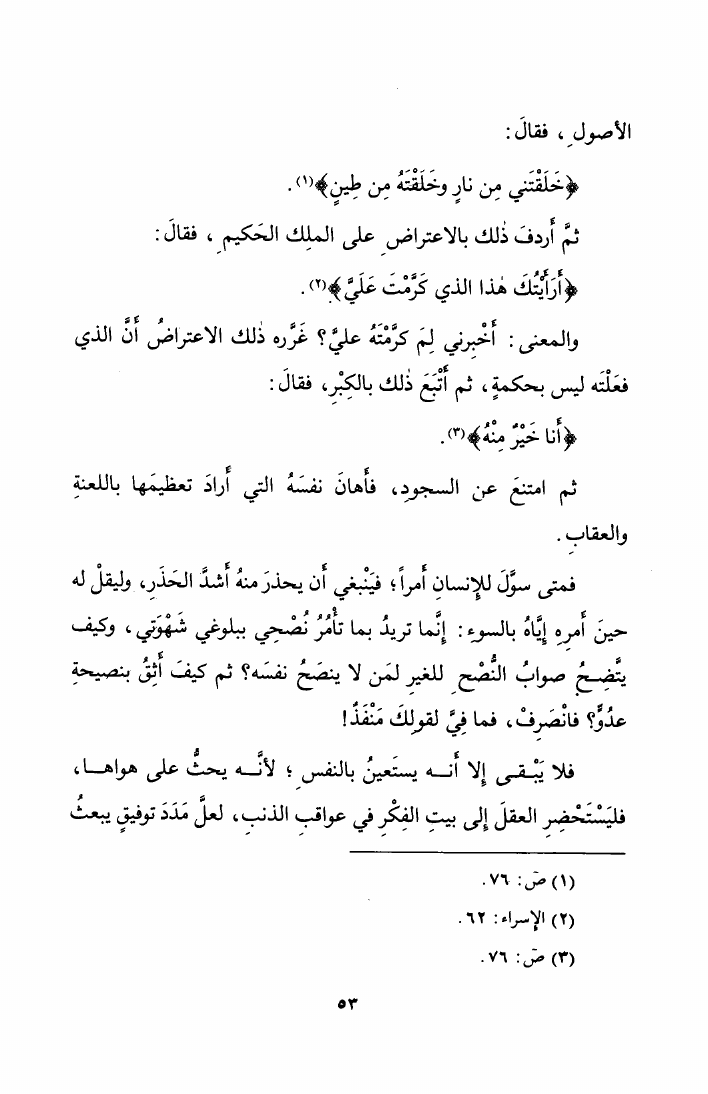 الأصولِ ، فقالَ :
﴿خَلَقْتَني مِن نارٍ وخَلَقْتَهُ مِن طِينٍ﴾(١) .
ثمَّ أَردفَ ذٰلك بالاعتراضِ على الملِك الحَكيمِ ، فقالَ :
﴿أَرَأَيْتُكَ هٰذا الذي كَرَّمْتَ عَلَيَّ﴾(٢) .
والمعنى : أَخْبِرني لِمَ كرَّمْتَهُ عليَّ ؟ غَرَّره ذٰلك الاعتراضُ أَنَّ الذي
فعَلْتَه ليس بحكمةٍ ، ثم أَتْبَعَ ذٰلك بالكِبْرِ ، فقالَ :
﴿أَنا خَيْرٌ مِنْهُ﴾(٣) .
ثم امتنعَ عن السجودِ، فأَهانَ نفسَهُ التي أَرادَ تعظيمَها باللعنةِ
والعقابِ .
فمتى سوَّلَ للإِنسانِ أَمراً ؛ فيَنْبغي أَن يحذرَ منهُ أَشدَّ الحَذَرِ، وليقلْ له
حينَ أَمرِهِ إِيَّاهُ بالسوءِ : إِنَّما تريدُ بما تأْمُرُ نُصْحِي ببلوغي شَهْوَتِي ، وكيف
يتَّضِحُ صوابُ النُّصْحِ للغيرِ لمَن لا ينصَحُ نفسَه ؟ ثم كيفَ أَثِقُ بنصيحةِ
عدُوٍّ ؟ فانْصَرِفْ ، فما فِيَّ لقولِكَ مَنْفَذٌ !
فلا يَبْقى إِلا أَنه يستَعينُ بالنفسِ ؛ لأنَّه يحثُّ على هواها ،
فليَسْتَحْضِرِ العقلَ إِلى بيتِ الفِكْرِ في عواقبِ الذنبِ، لعلَّ مَدَدَ توفيقٍ يبعثُ
(١) صۤ : ٧٦ .
(٢) الإِسراء : ٦٢ .
(٣) صۤ : ٧٦ .
٥٣